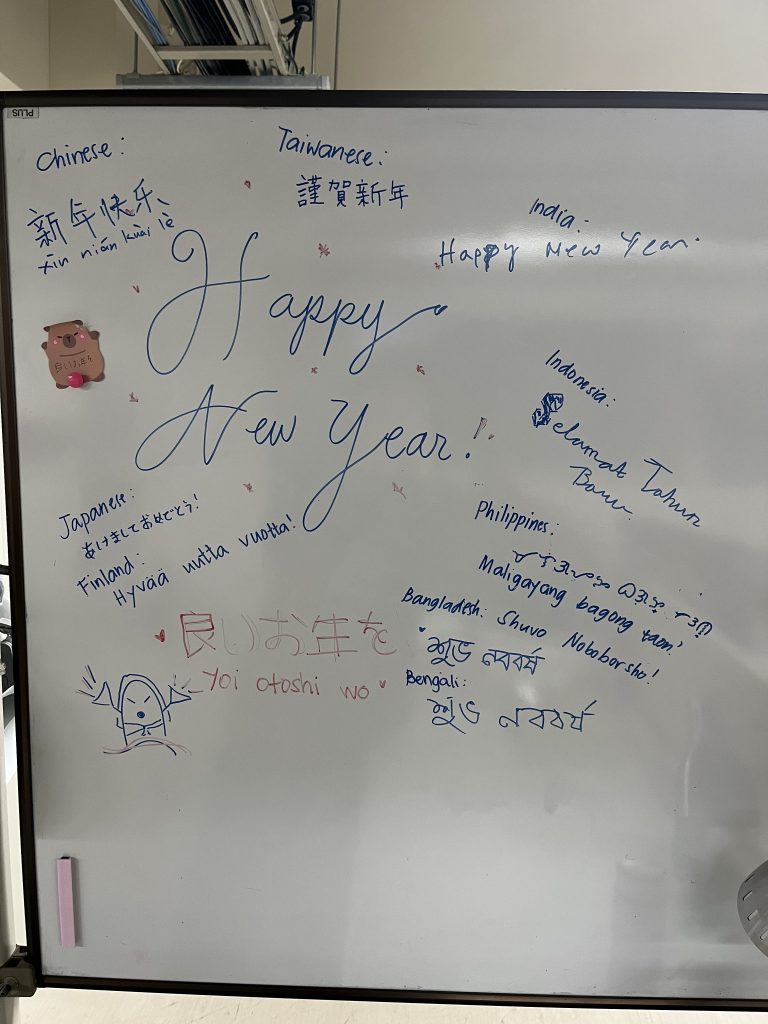 PLUS
Chinese:
新年快乐
xīn nián kuài lè
Taiwanese:
謹賀新年
India:
Happy New Year
Happy
New Year!
良いお年を
Indonesia:
Selamat Tahun
Baru
Japanese:
あけましておめでとう!
Finland:
Hyvää uutta vuotta!
Philippines:
Maligayang bagong taon!
Bangladesh: Shuvo Noboborsho!
শুভ নববর্ষ
Bengali:
শুভ নববর্ষ
良いお年を
Yoi otoshi wo